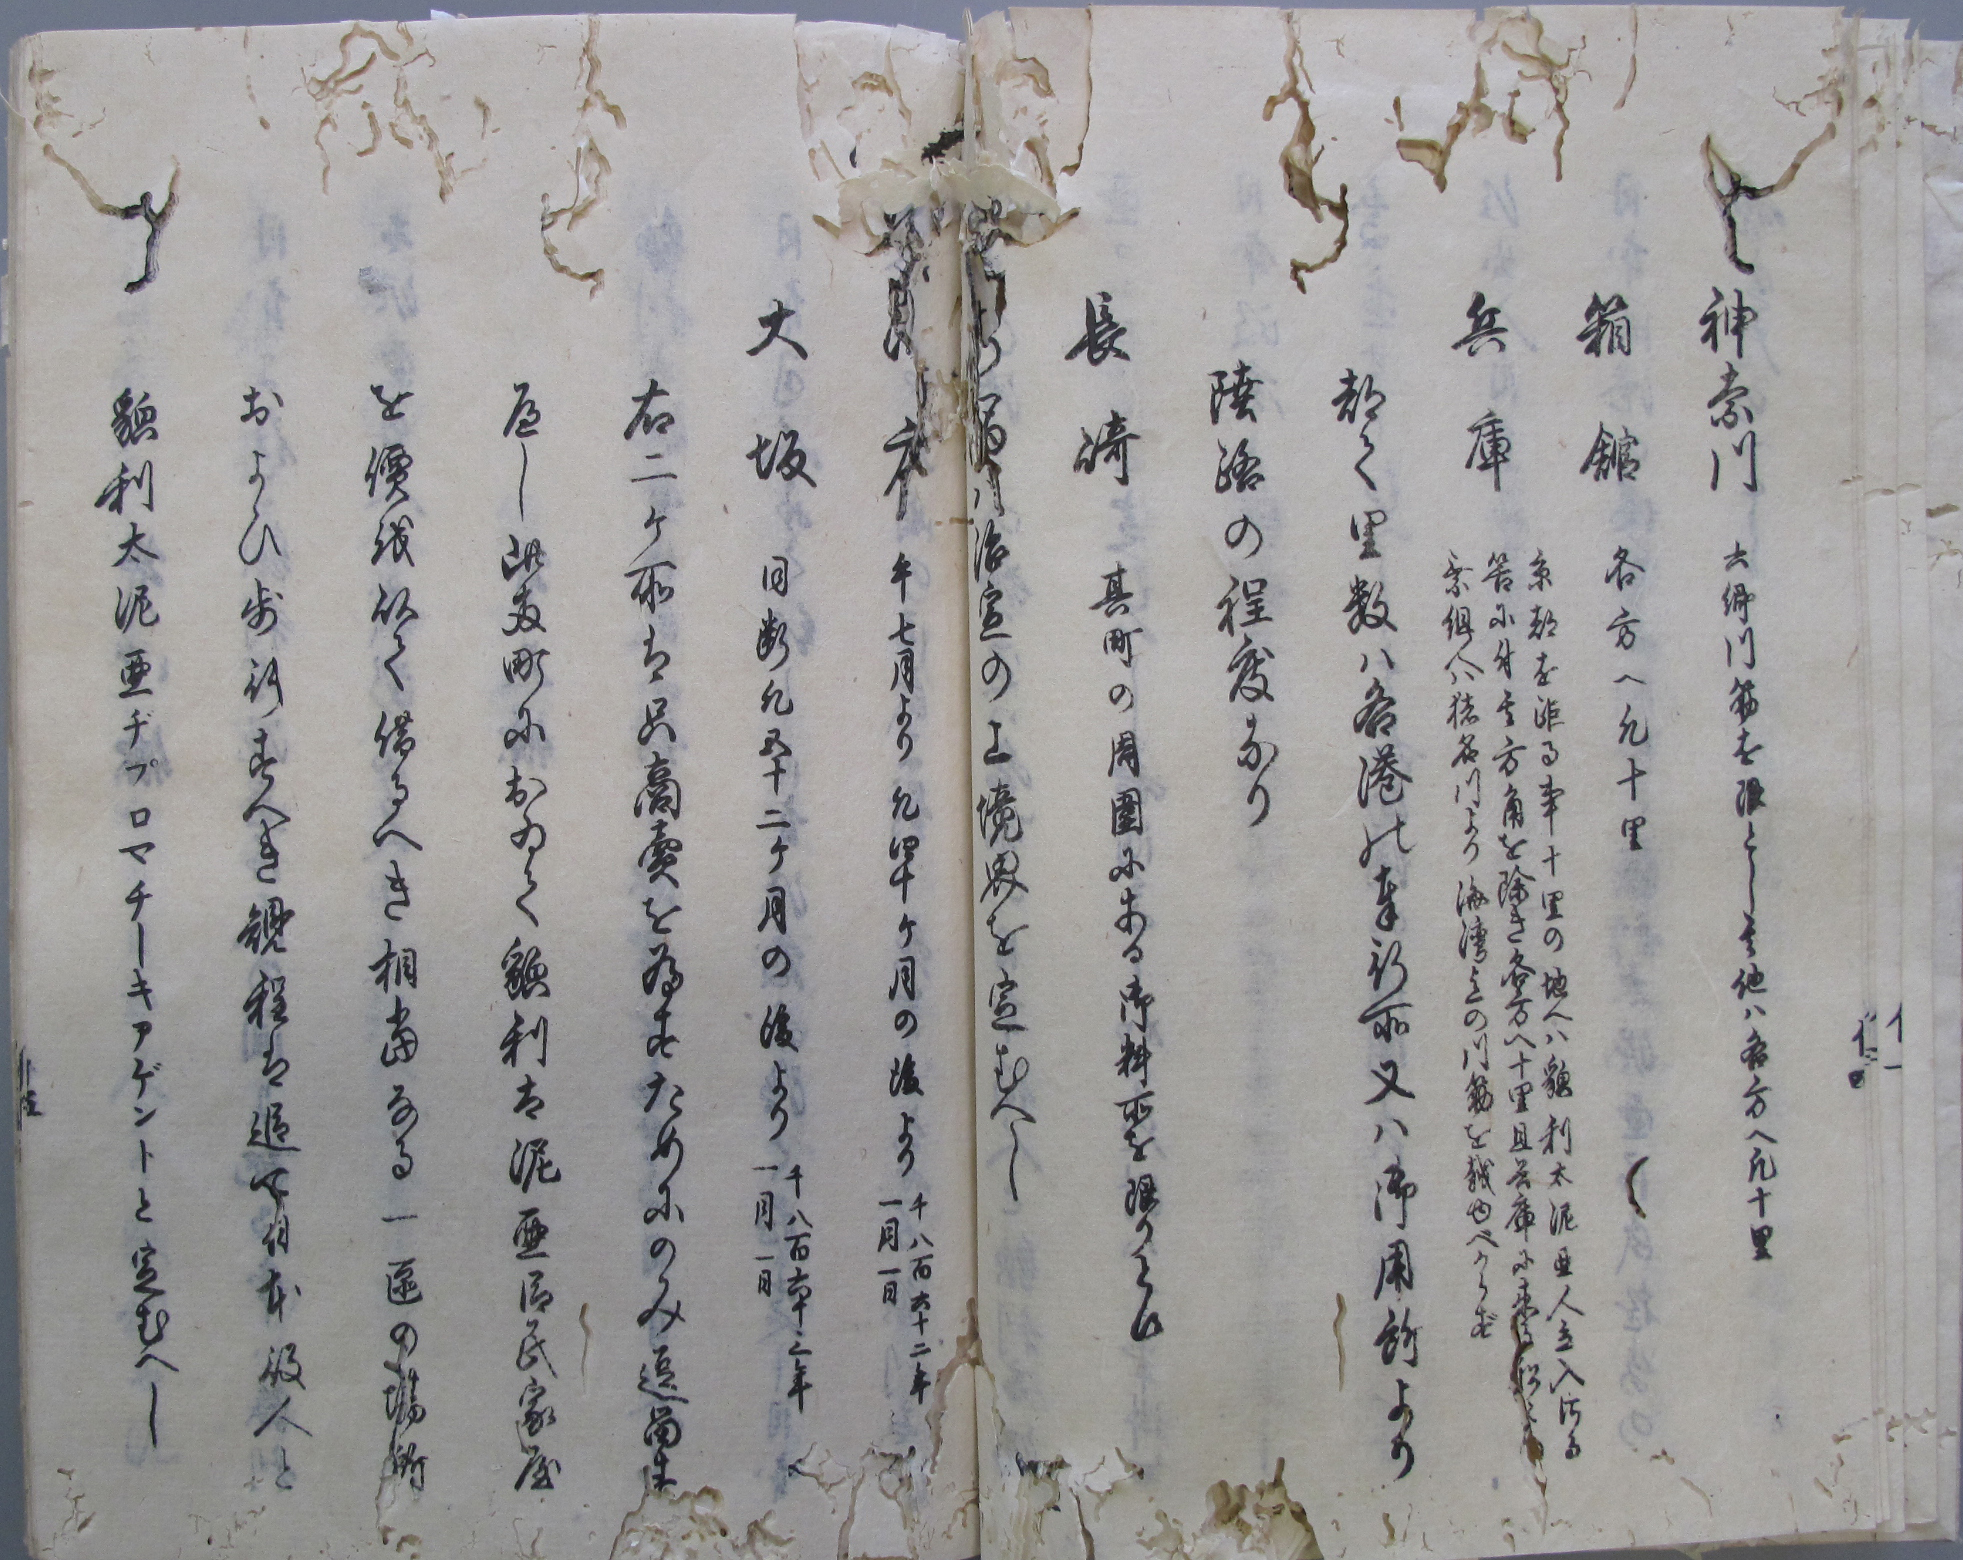 神奈川 六郷川筋を限とし其他ハ各方へ凡十里
箱館 各方へ凡十里
兵庫 京都を距る事十里の地へハ貌利太泥亜人立入さる
筈に付其方角を除き各方へ十里且兵庫に来る船々の
乗組人ハ猪名川より海湾迄の川筋を越ゆへからす
都て里数ハ各港の奉行所又ハ御用所より
陸路の程度なり
長崎 其町の周囲にある御料所を限りとす
潟ハ治定の上境界を定むへし
戸 午七月より凡四十ケ月の後より 千八百六十二年
一月一日
大坂 同断凡五十二ケ月の後より 千八百六十三年
一月一日
右二ケ所は只商賣を為すためにのみ逗留す
へし此両町におゐて貌利太泥亜臣民家屋
を價銭以て借るへき相当なる一區の場所
およひ歩行すへき規程は追て日本役人と
貌利太泥亜ヂプロマチーキアゲントと定むへし